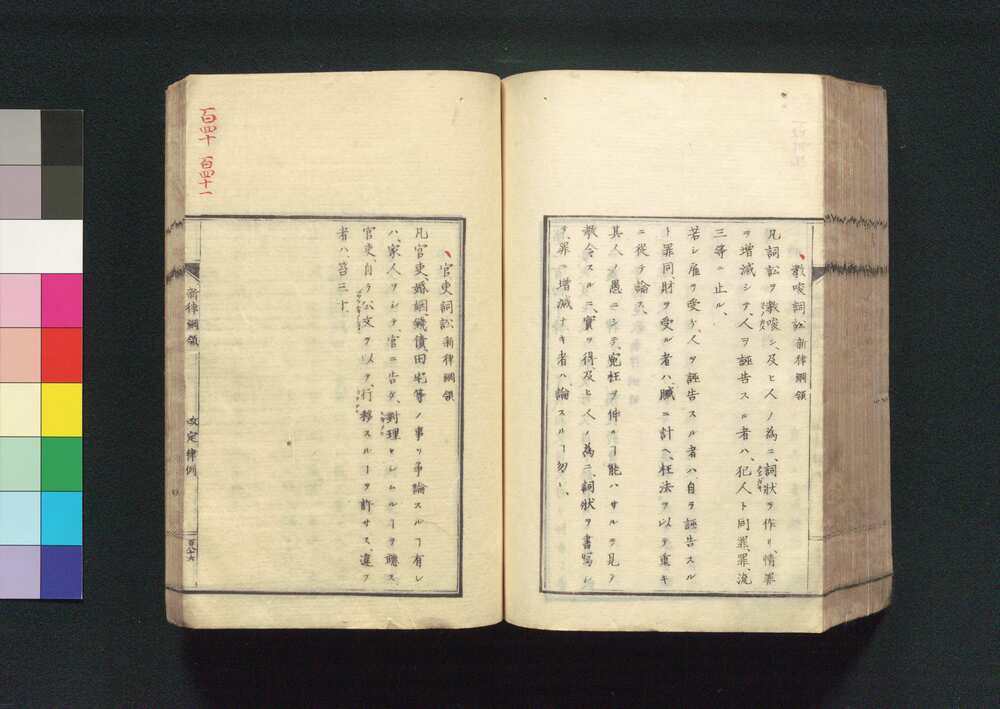 教唆詞訟 新律綱領
凡詞訟ヲ教唆シ、及ヒ人ノ為ニ、詞狀ヲ作リ、情罪
ヲ增減シテ、人ヲ誣告スル者ハ、犯人ト同罪、罪、流
三等ニ止ル、
若シ雇ヲ受ケ、人ヲ誣告スル者ハ自ラ誣告スル
ト罪同、財ヲ受ル者ハ、贓ニ計ヘ、枉法ヲ以テ重キ
ニ從テ論ス、
其人ノ愚ニシテ、寃枉ヲ伸ルヿ能ハサルヲ見テ
教令スルニ、實ヲ得、及ヒ人ノ為ニ、詞狀ヲ書寫シ
テ、罪ニ增減ナキ者ハ、論スルヿ勿レ、
官吏詞訟 新律綱領
凡官吏、婚姻、錢債、田宅等ノ事ヲ爭論スルヿ有レ
ハ、家人ヲシテ、官ニ告ケ、對理セシムルヿヲ聽ス
官吏、自ラ公文ヲ以テ、行移スルヿヲ許サス、違フ
者ハ、笞三十、
新律綱領 改定律例
百四十 百四十一